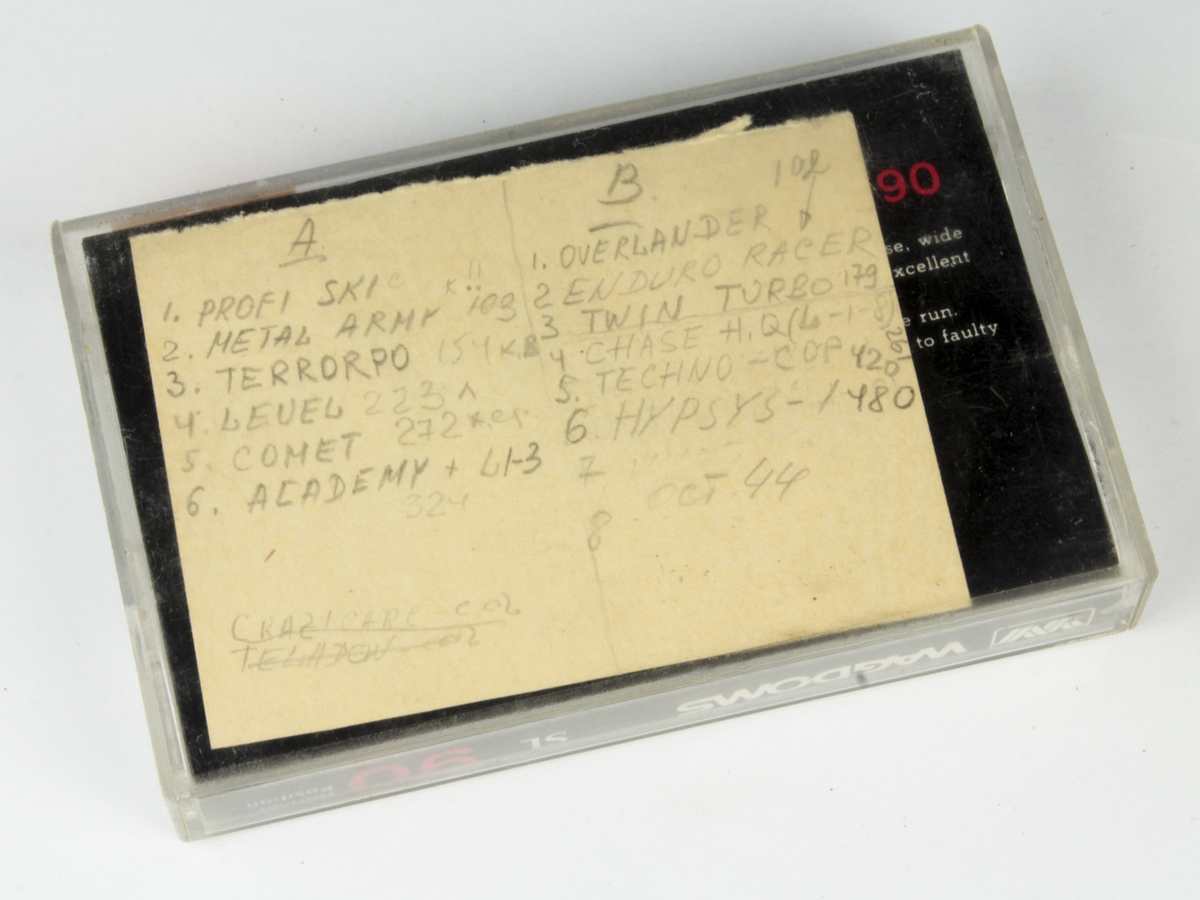 A.
1. PROFI SKI
2. METAL ARMY 103
3. TERRORPO 154
4. LEVEL 223
5. COMET 272
6. ACADEMY + LI-3
324
B.
102
1. OVERLANDER
2 ENDURO RACER
3 TWIN TURBO 179
4. CHASE H.Q(4-1-8) 261
5. TECHNO-COP 420
6. HYPSYS-1 480
7
OCT-44
8
90
se, wide
xcellent
e run.
to faulty
WAGDOMS
SL
90
Position